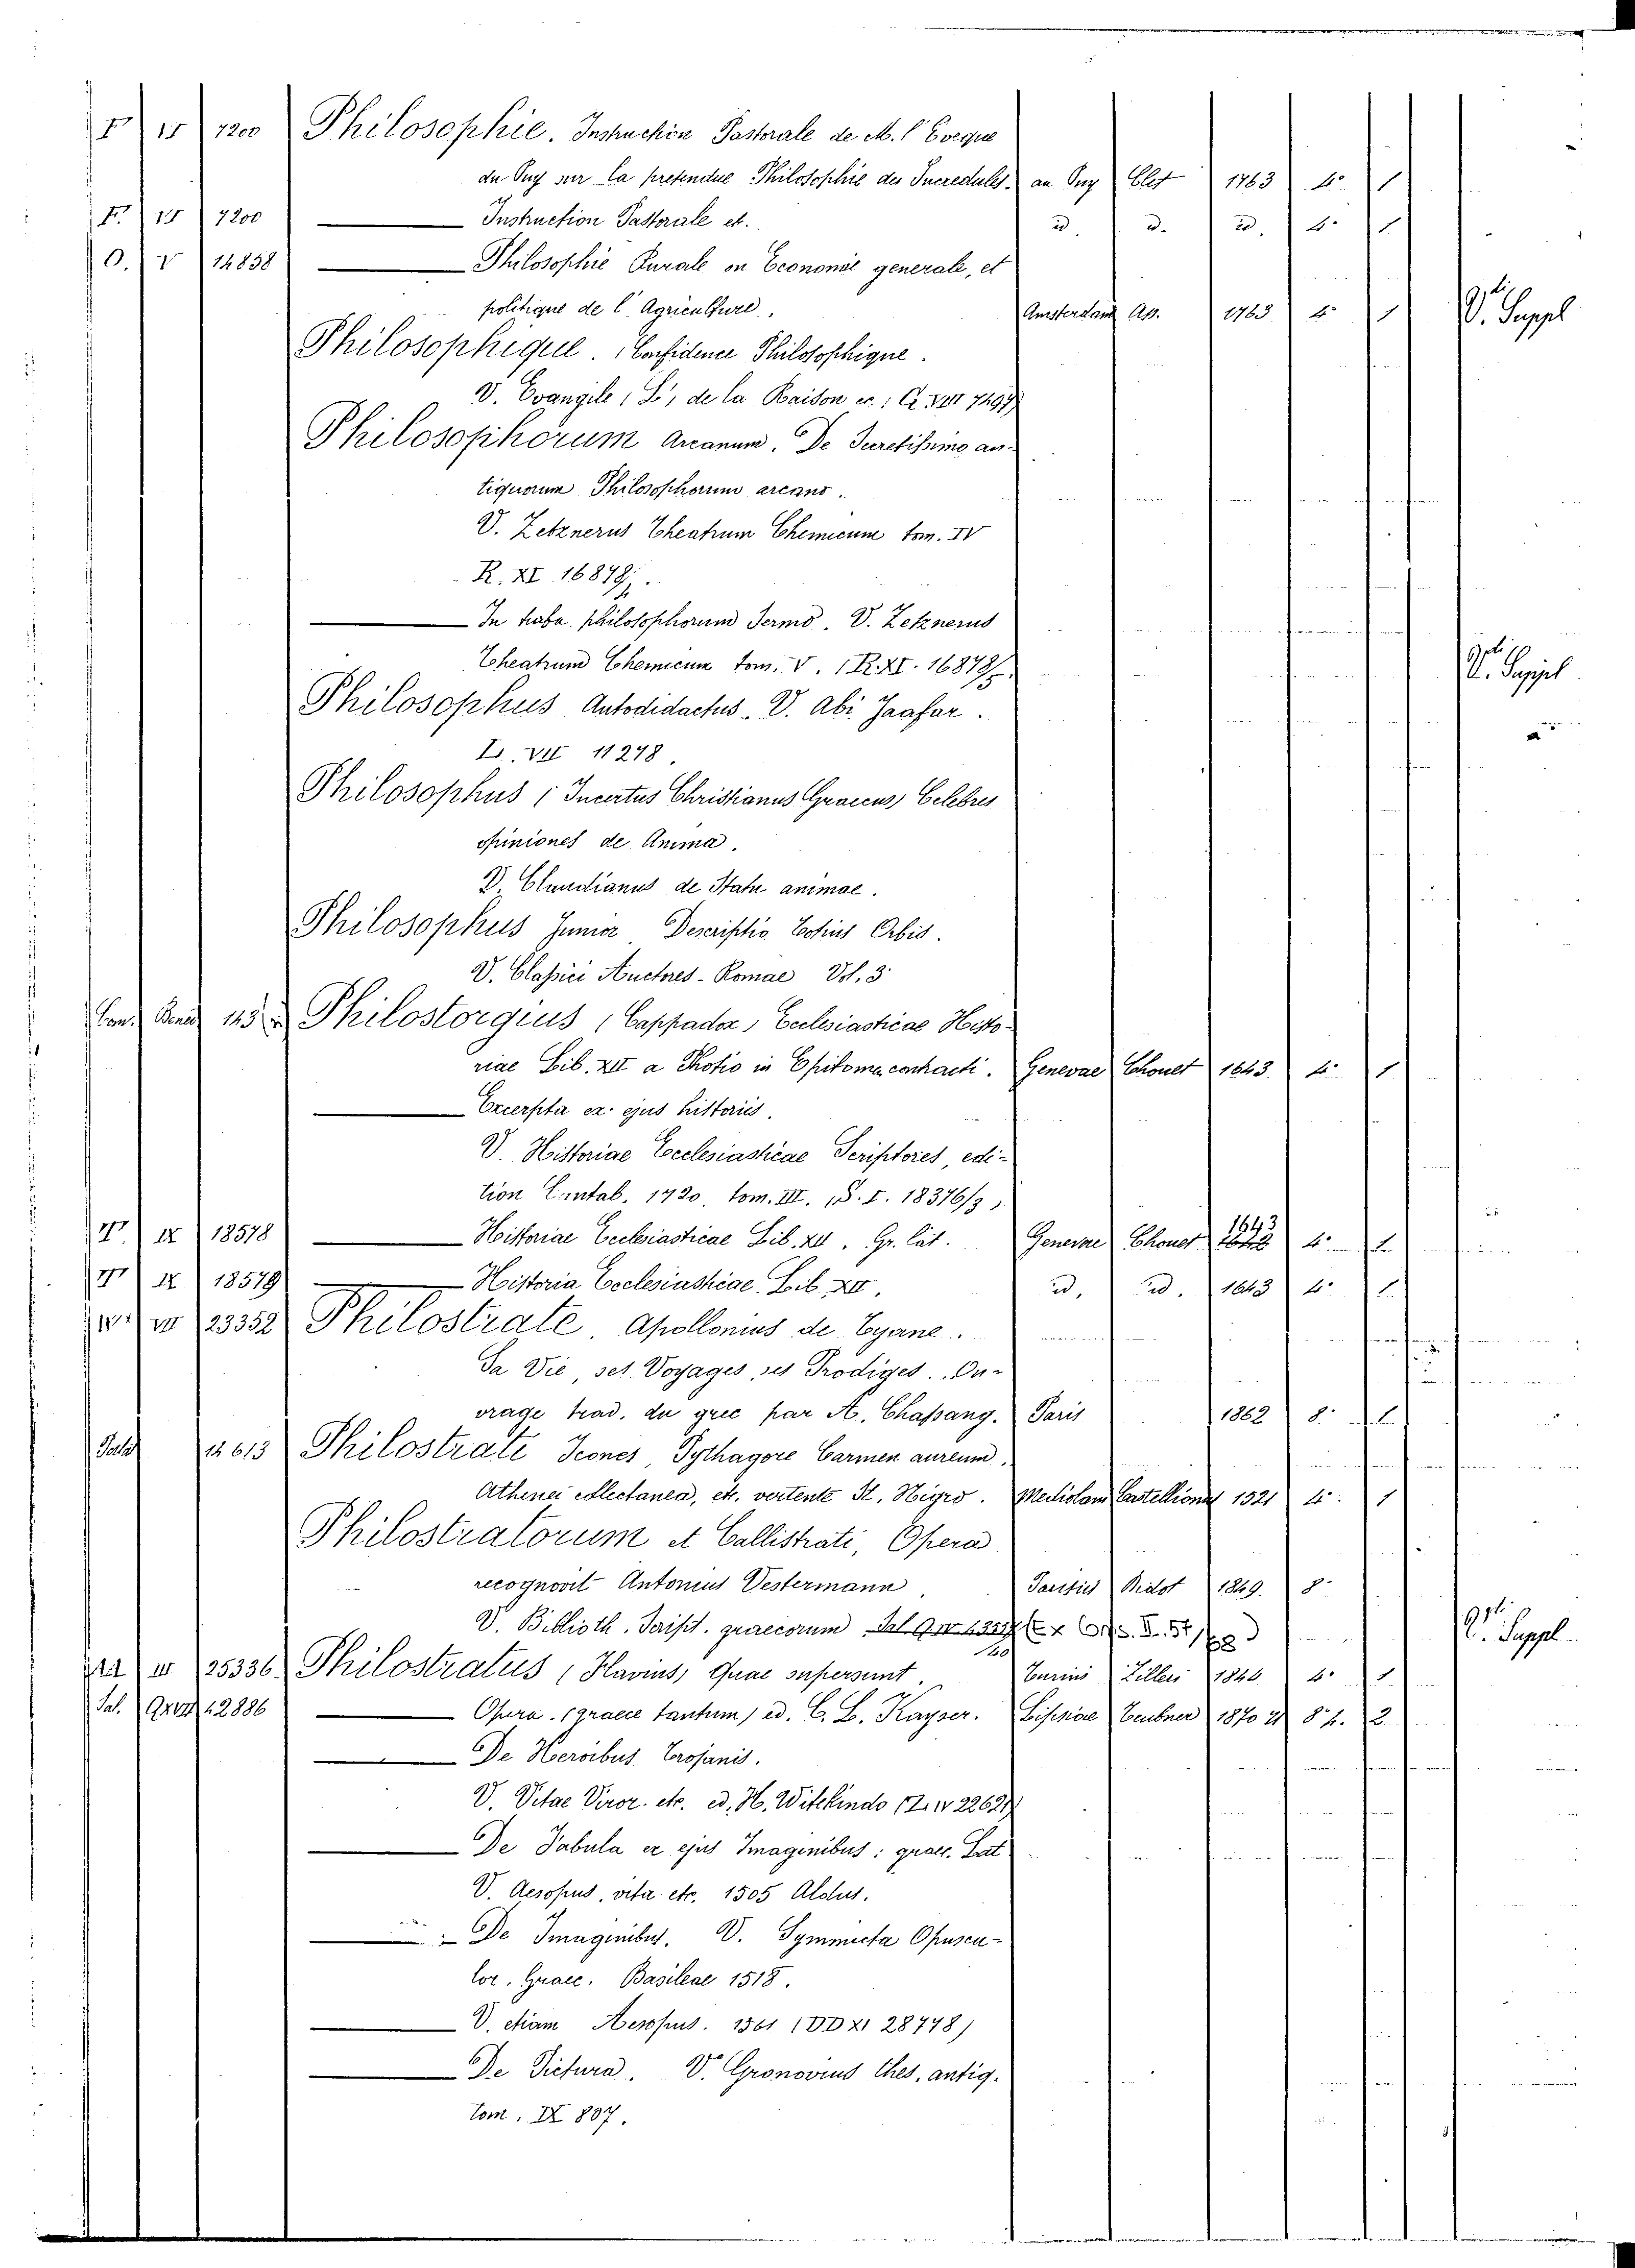 F 15 7200 Philosophie. Instruction Pastorale de M. l'Eveque
du Puy sur la pretendue Philosophie des Incredules. au Puy Clet 1763 4° 1
F. 15 7200 Instruction Pastorale et. id. id. id. 4° 1
O. V 14838 Philosophie Rurale on Economie generale, et
politique de l'Agriculture. Amsterdam Ap. 1763 4° 1 V. Suppl
Philosophique. Confidence Philosophique.
V. Evangile (L', de la Raison ec.: C. VIII 7497)
Philosophorum Arcanum. De Secretissimo an-
tiquorum Philosophorum arcano.
V. Zetznerus Theatrum Chemicum tom. IV
R. XI 16878/
In turba philosophorum Sermo. V. Zetznerus
Theatrum Chemicum tom. V. (R. XI. 16878/ V. Suppl
Philosophus Autodidactus. V. Abi Jaafar.
L. VII 11278.
Philosophus (Incertus Christianus Graecus) Celebres
opiniones de Anima.
V. Claudianus de Statu animae.
Philosophus Junior Descriptio totius Orbis.
V. Classici Auctores - Romae Vol. 3
Philostorgius (Cappadox) Ecclesiasticae Histo-
riae Lib. XII a Photio in Epitomen contracti. Genevae Chouet 1643. 4° 1
Excerpta ex ejus historiis.
V. Historiae Ecclesiasticae Scriptores, edi-
tion Cantab. 1720. tom. III. (S. I. 18376/3)
T. IX 18578 Historiae Ecclesiasticae Lib. XII. Gr. lat. Genevae Chouet 1643 4° 1
T IX 18579 Historia Ecclesiasticae Lib. XII. id. id. 1643 4° 1
23352 Philostrate. Apollonius de Tyane.
Sa Vie, ses Voyages, ses Prodiges. Ou-
vrage trad. du grec par A. Chassang. Paris 1862 8° 1
14613 Philostrati Icones, Pythagore Carmen aureum.
Athenei collectanea, etc. vertente St. Nigro. Mediolani Castellioneus 1521 4° 1
Philostratorum et Callistrati, Opera
recognovit Antonius Westermann. Parisiis Didot 1849. 8°
V. Biblioth. Script. graecorum V. Suppl
25336 Philostratus (Flavius) Quae supersunt. Turini Zilleri 1844 4° 1
Sal. 42886 Opera. (graece tantum) ed. C. L. Kayser. Lipsiae Teubner 1870 71 8° p. 2
De Heroibus Trojanis.
V. Vitae Viror. etc. ed. H. Witekindo (Z. IV 22621)
De Tabula ex ejus Imaginibus: graec. Lat
V. Aesopus, vita etc. 1505 Aldus.
De Imaginibus. V. Symmicta Opuscu-
lor. Graec. Basileae 1518.
V. etiam Aesopus. 1561 (DD XI 28748)
De Pictura. V. Gronovius thes. antiq.
tom. IX 807.